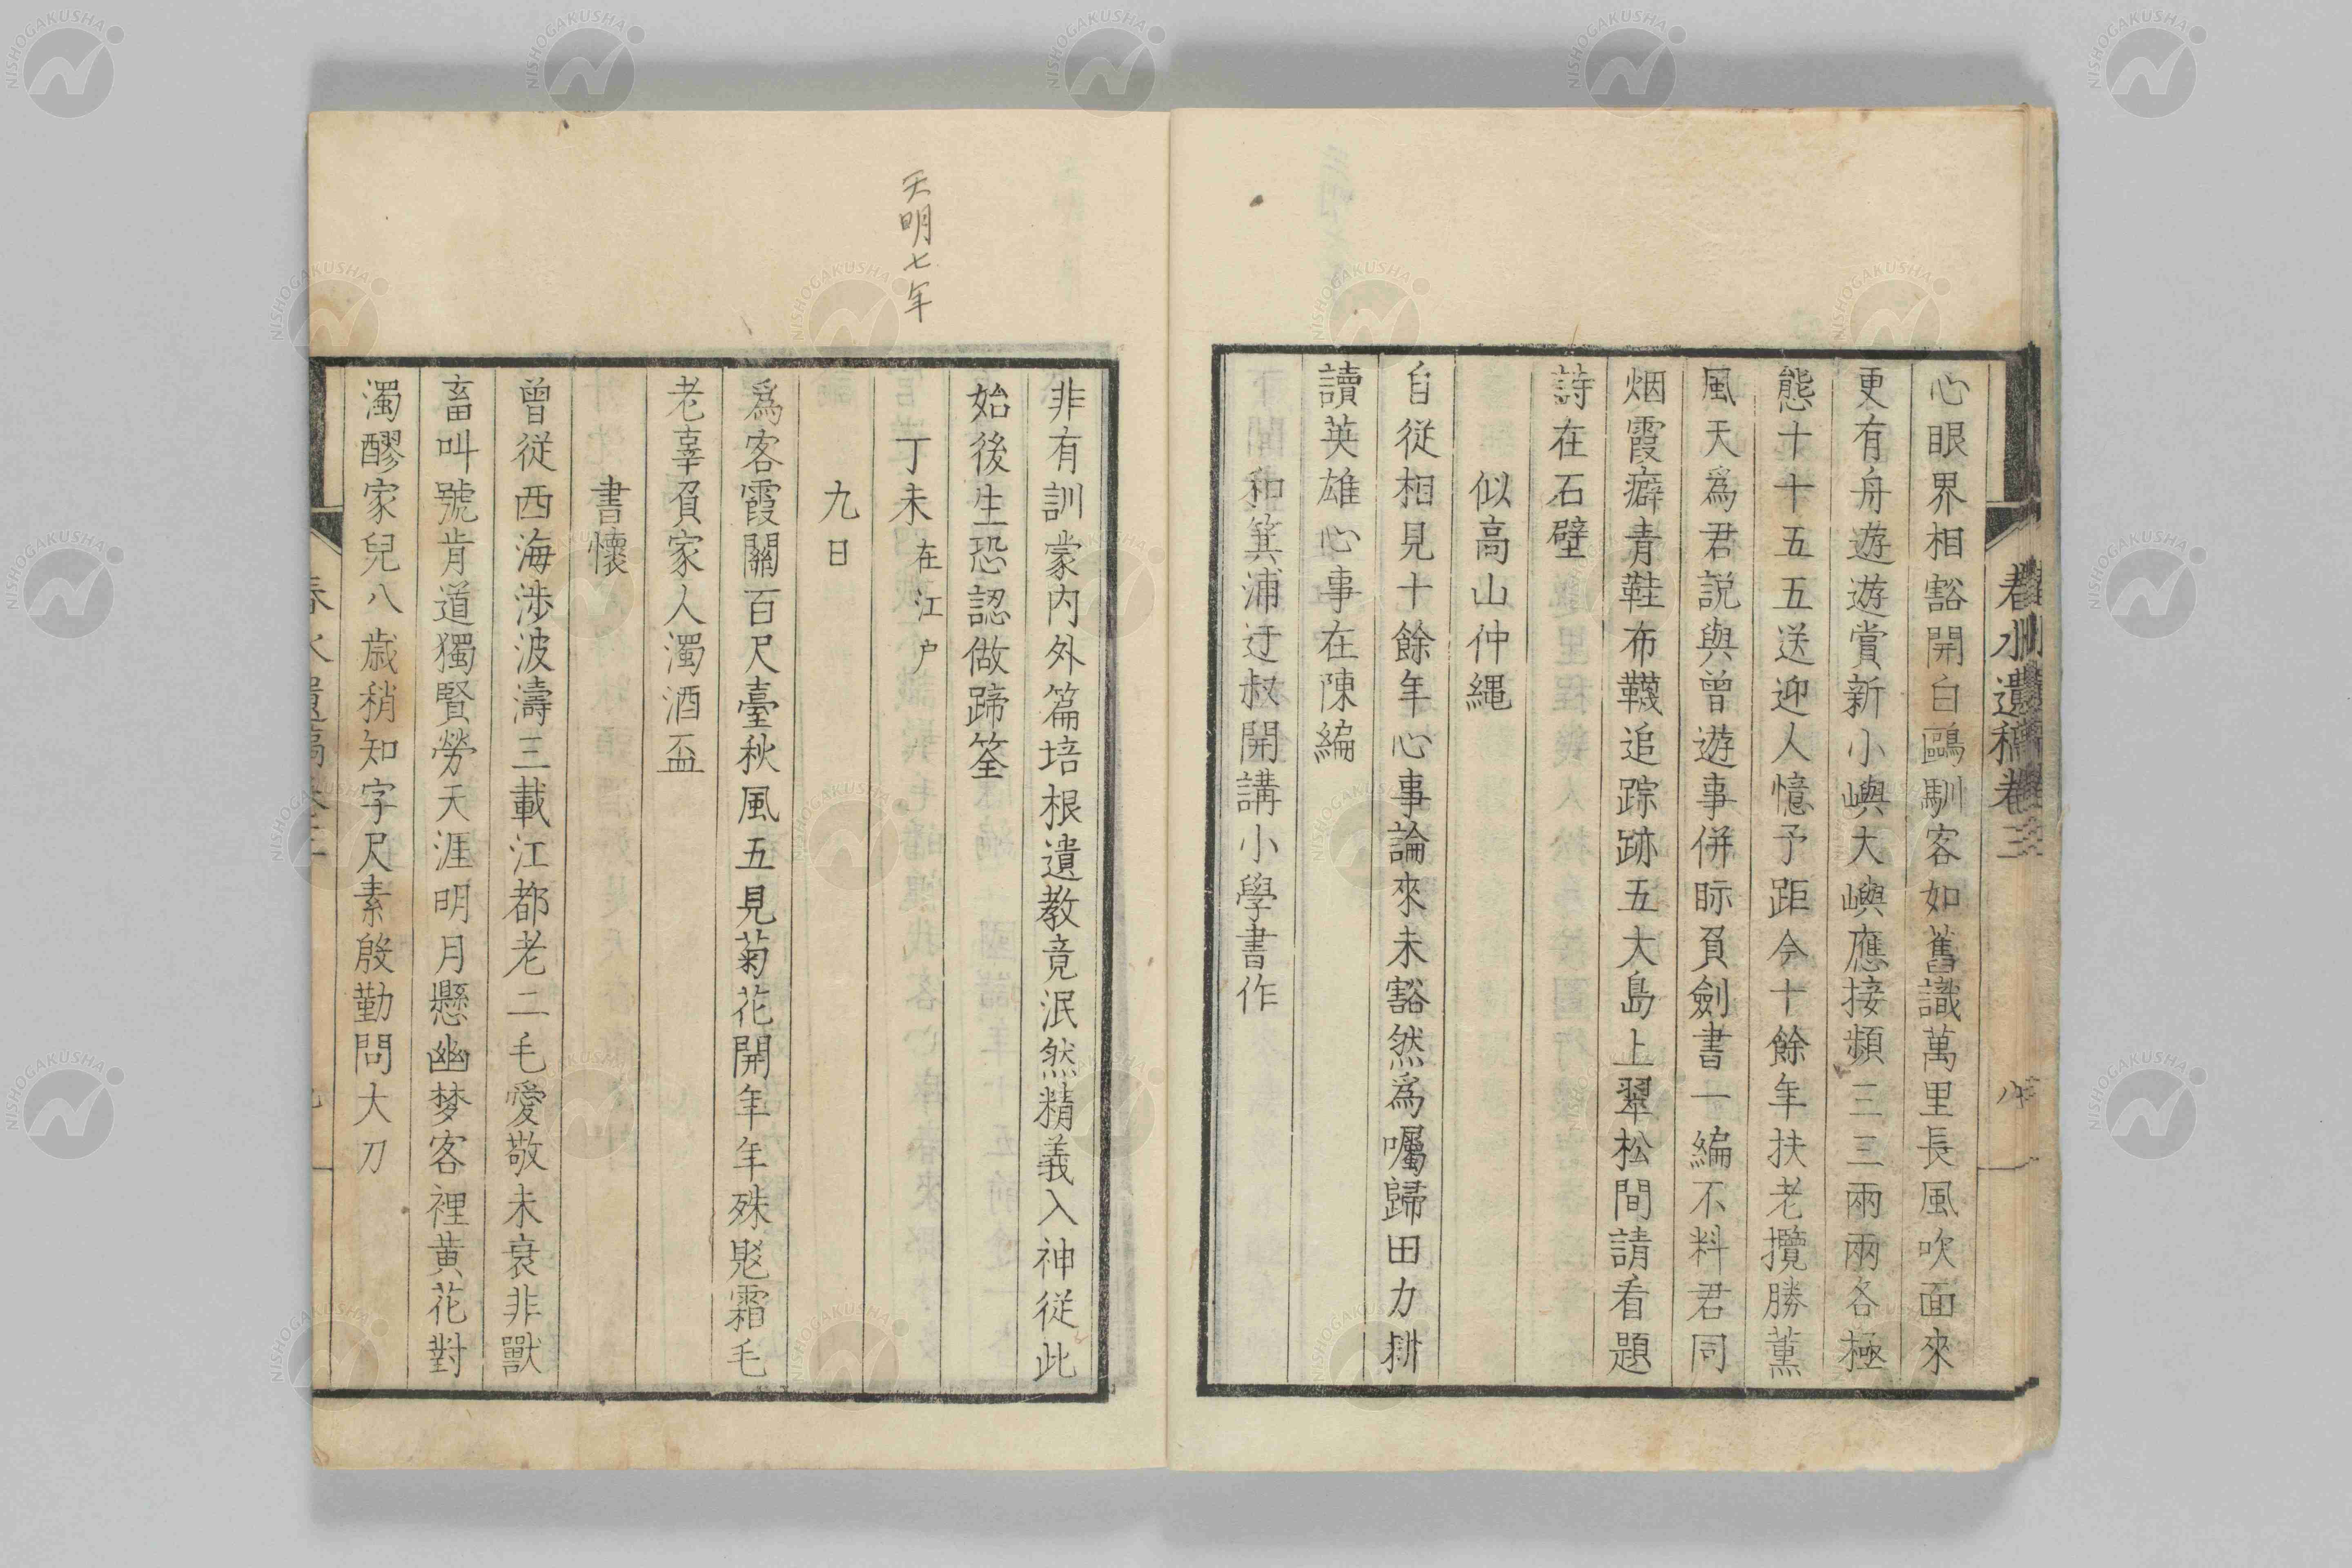 春水遺稿卷三
八
心眼界相豁開白鷗馴客如舊識萬里長風吹面來
更有舟遊遊賞新小嶼大嶼應接頻三三兩兩各極
態十十五五送迎人憶予距今十餘年扶老攬勝薰
風天爲君説與曾遊事併眎負劍書一編不料君同
烟霞癖青鞋布韈追踪跡五大島上翠松間請看題
詩在石壁
似高山仲繩
自從相見十餘年心事論來未豁然爲囑歸田力耕
讀英雄心事在陳編
和箕浦迂叔開講小學書作
非有訓蒙内外篇培根遺教竟泯然精義入神從此
始後生恐認做蹄筌
天明七年
丁未 在江戸
九日
爲客霞關百尺臺秋風五見菊花開年年殊愍霜毛
老辜負家人濁酒盃
書懷
曾從西海渉波濤三載江都老二毛愛敬未衰非獸
畜叫號肯道獨賢勞天涯明月懸幽梦客裡黄花對
濁醪家兒八歳稍知字尺素殷勤問大刀
春水遺稿卷三
NISHOGAKUSHA